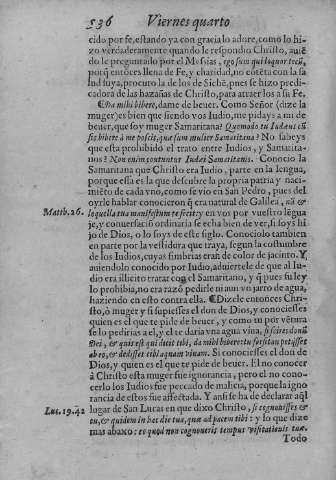 536 Viernes quarto
cido por fe, estando ya con gracia lo adore, como lo hi-
zo verdaderamente quando le respondio Christo, auiẽ
do le preguntado por el Messias, ego sum qui loquor tecũ,
porq̃ entõces llena de Fe, y charidad, no cõtẽta con la sa
lud suya, procuro la de los de Sichẽ, pues se hizo predi-
cadora de las hazañas de Christo, para atraer los a su Fe.
Da mihi bibere, dame de beuer. Como Señor (dize la
muger) es bien que siendo vos Iudio, me pidays a mi de
beuer, que soy muger Samaritana? Quomodo tu Iudæus cũ
sis bibere à me poscis, quæ sum mulier Samaritana? No sabeys
que esta prohibido el trato entre Iudios, y Samarita-
nos? Non enim coutuntur Iudæi Samaritanis. Conocio la
Samaritana que Christo era Iudio, parte en la lengua,
porque essa es la que descubre la propria patria y naci-
miẽto de cada vno, como se vio en San Pedro, pues del
oyrle hablar conocieron q̃ era natural de Galilea, nã &
Matth. 26. loquella tua manifestum te facit: y en vos por vuestro lẽgua
je, y conuersació ordinaria se echa bien de ver, si soys hi
jo de Dios, o lo soys de este siglo. Conociolo tambien
en parte por la vestidura que traya, segun la costumbre
de los Iudios, cuyas fimbrias eran de color de jacinto. Y
auiendolo conocido por Iudio, aduiertele de que al Iu-
dio era illicito tratar con el Samaritano, y q̃ pues su le
y lo prohibia, no era razó pedirle ni aun vn jarro de agua,
haziendo en esto contra ella. Dizele entonces Chri-
sto, ò muger y si supiesses el don de Dios, y conociesses
quien es el que te pide de beuer, y como tu por vẽtura
se lo pedirias a el, y el te daria vna agua viua, si scires donũ
Dei, & quis est qui dicit tibi, da mihi bibere: tu forsitan petisses
ab eo, & dedisset tibi aquam viuam. Si conociesses el don de
Dios, y quien es el que te pide de beuer. El no conocer
à Christo esta muger fue ignorancia, pero el no cono-
cerlo los Iudios fue peccado de malicia, porque la igno-
rancia de estos fue affectada. Y ansi se ha de declarar aq̃l
Luc. 19. 42 lugar de San Lucas en que dixo Christo, si cognouisses &
tu, & quidem in hac die tua, quæ ad pacem tibi: y lo que dize
mas abaxo: eo quod non cognoueris tempus visitationis tuæ.
Todo